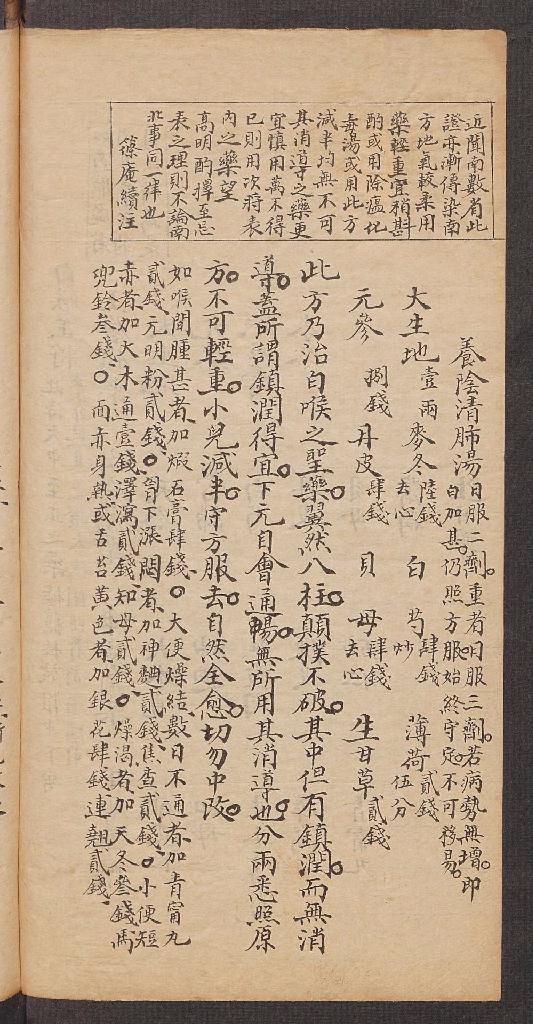 近聞南數省此
證亦漸傳染南
方地氣較柔用
藥輕重宜稍斟
酌或用除瘟化
毒湯或用此方
減半均無不可
其消導之藥更
宜慎用萬不得
已則用次將表
內之藥望
高明酌擇至忌
表之理則不論南
北事同一律也
篠庵續注
養陰清肺湯 日服二劑重者日服三劑若病勢無增即
白加甚仍照方服始終守定不可移易
大生地 壹兩 麥冬 陸錢去心 白芍 肆錢炒 薄荷 貳錢伍分
元參 捌錢 丹皮 肆錢 貝母 肆錢去心 生甘草 貳錢
此方乃治白喉之聖藥翼然八柱顛撲不破其中但有鎮潤而無消
導蓋所謂鎮潤得宜下元自會通暢無所用其消導也分兩悉照原
方不可輕重小兒減半守方服去自然全愈切勿中改
如喉間腫甚者加煆石膏肆錢大便燥結數日不通者加青寧丸
貳錢元明粉貳錢胷下漲悶者加神麯貳錢焦查貳錢小便短
赤者加大木通壹錢澤瀉貳錢知母貳錢燥渴者加天冬叄錢馬
兜鈴叄錢面赤身熱或舌苔黃色者加銀花肆錢連翹貳錢